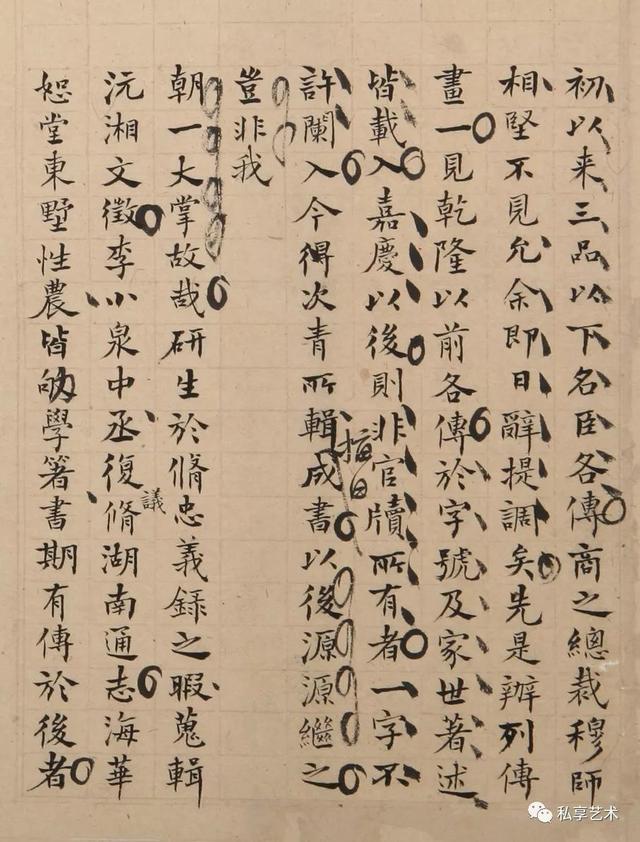 初以来三品以下名臣各傳商之總裁穆師
相堅不見允余即日辭提調矣先是辦列傳
畫一見乾隆以前各傳於字號及家世著述
皆載入嘉慶以後則非官牘所有者一字不
許闌入今得次青所輯成書以後源源繼之
指日
豈非我
朝一大掌故哉研生於脩忠義録之暇蒐輯
沅湘文徵李小泉中丞復脩湖南通志海華
議
恕堂東墅性農皆學箸書期有傳於後者
私享艺术